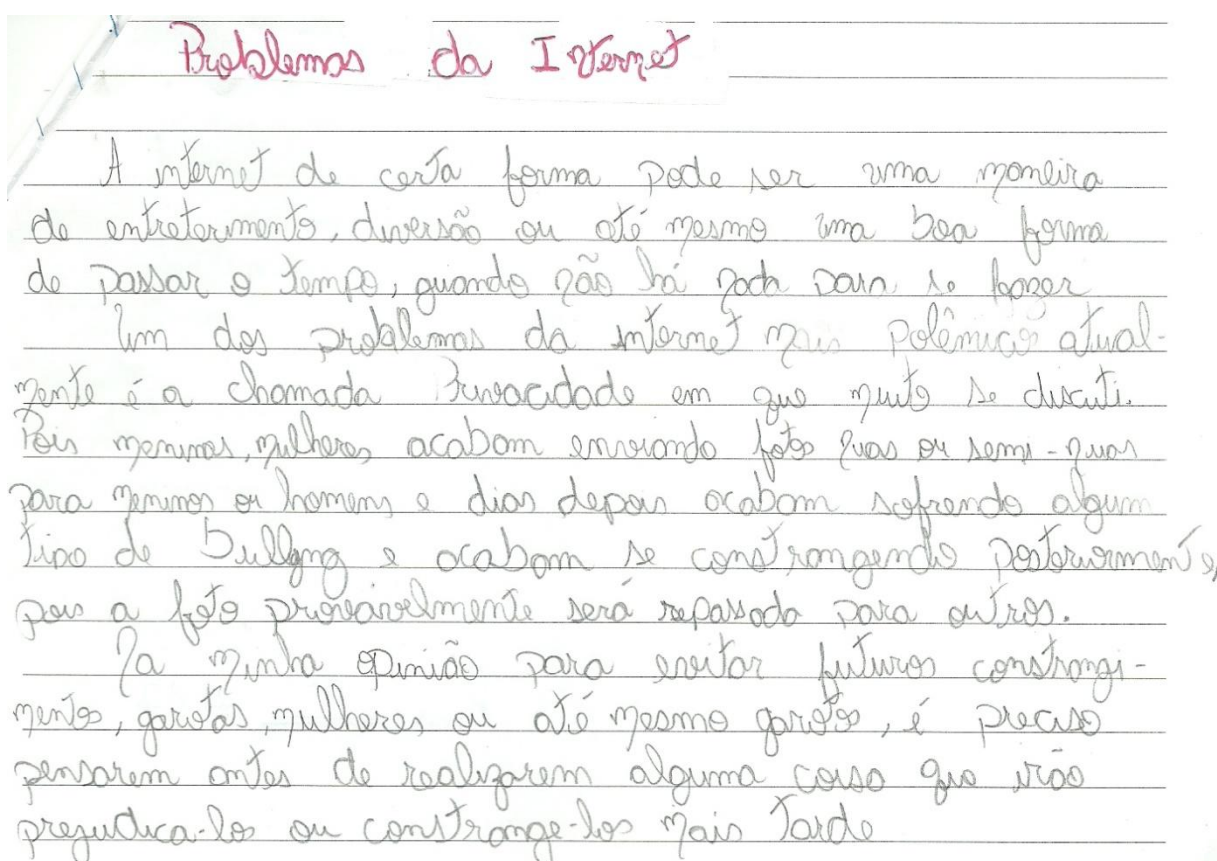 Problemas da Internet
A internet de certa forma pode ser uma maneira
de entreterimento, diversão ou até mesmo uma boa forma
de passar o tempo, quando não há nada para se fazer
Um dos problemas da internet mais polêmicos atual-
mente é a chamada Privacidade em que muito se discuti.
Pois meninas, mulheres acabam enviando fotos nuas ou semi-nuas
para meninos ou homens e dias depois acabam sofrendo algum
tipo de Bullyng e acabam se constrangendo posteriormente,
pois a foto provavelmente será repassada para outros.
Na minha opinião para evitar futuros constrangi-
mentos, garotas, mulheres ou até mesmo garotos, é preciso
pensarem antes de realizarem alguma coisa que irão
prejudica-los ou constrange-los mais tarde